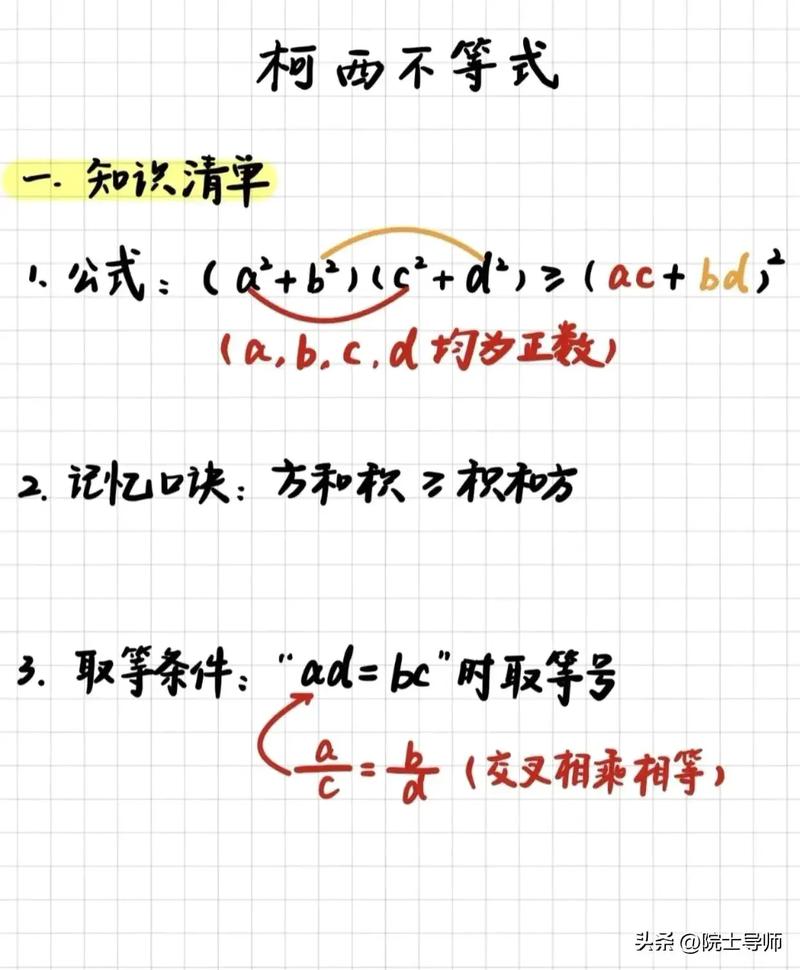 柯西不等式
一. 知识清单
1. 公式：(a²+b²)(c²+d²)≥(ac+bd)²
(a,b,c,d均为正数)
2. 记忆口诀：方和积≥积和方
3. 取等条件：“ad=bc”时取等号
a/c=b/d (交叉相乘相等)
头条 @院士导师